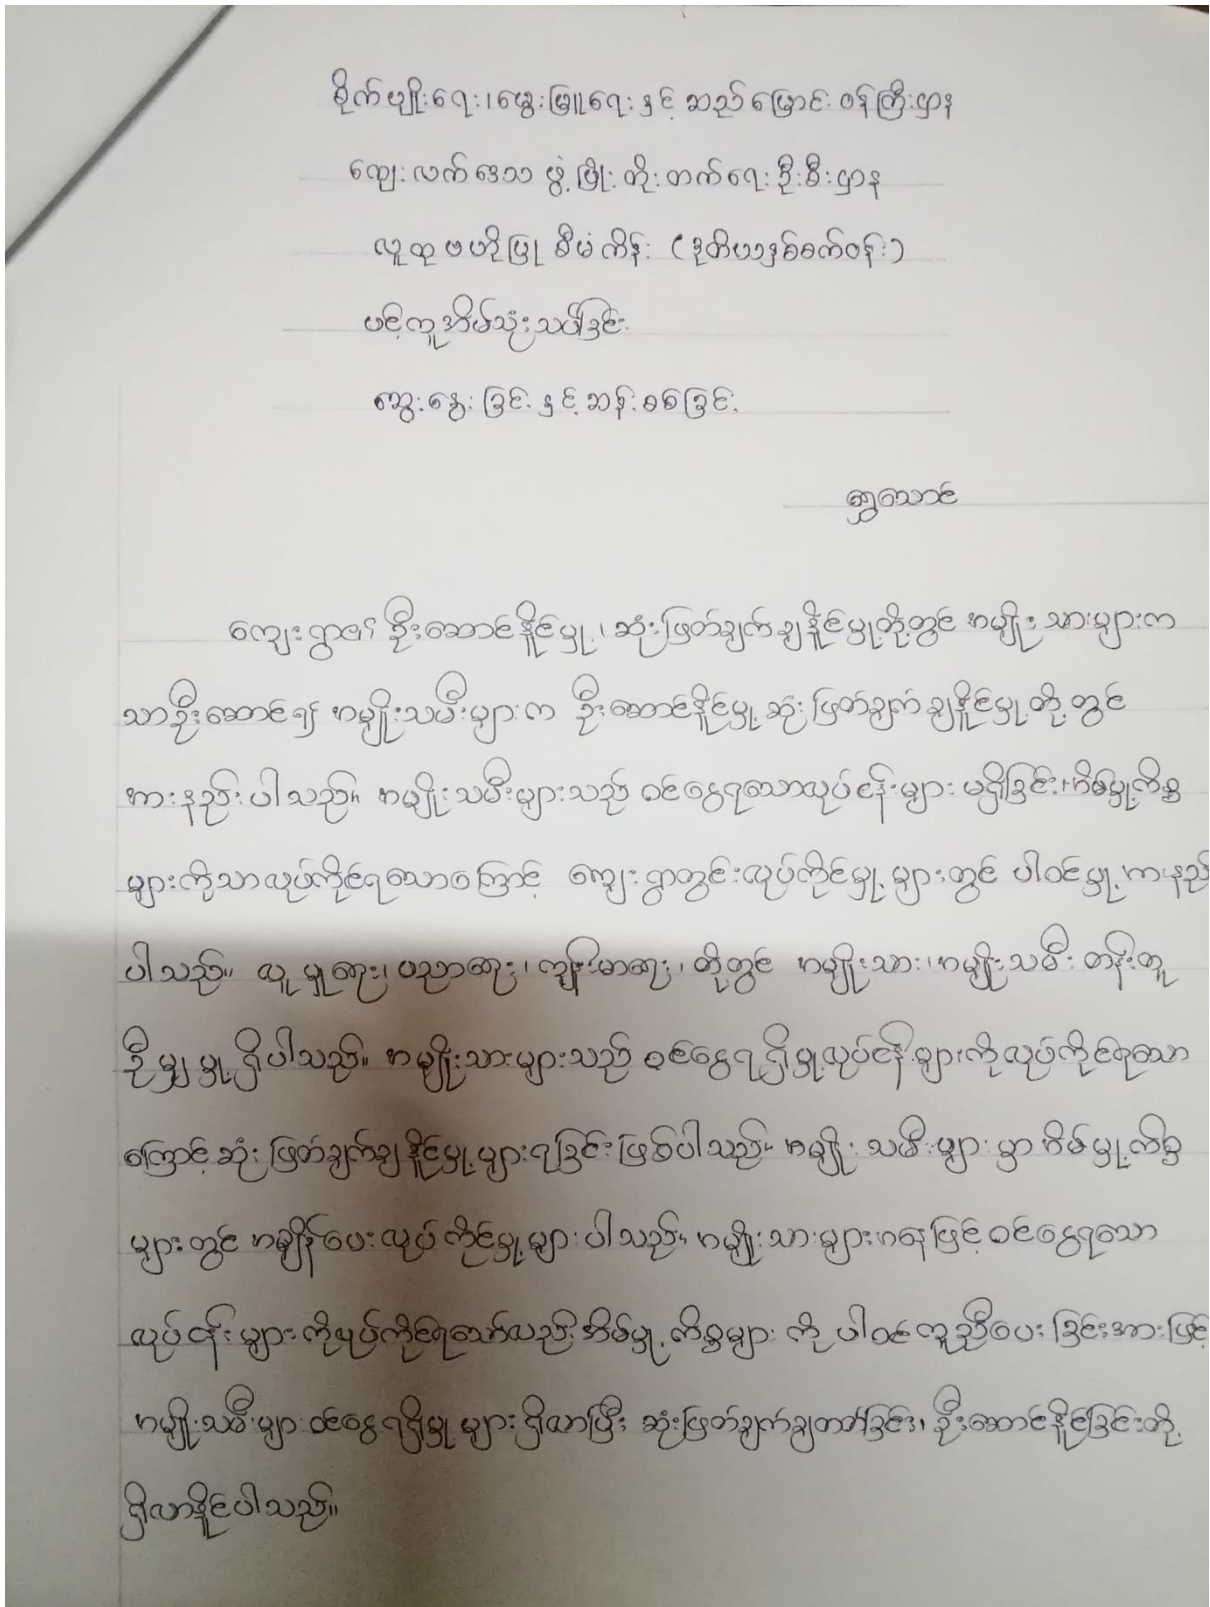 စိုက်ပျိုးရေး၊မွေးမြူရေး နှင့် ဆည်မြောင်း ဝန်ကြီးဌာန
ကျေးလက်ဒေသ ဖွံ့ဖြိုးတိုးတက်ရေး ဦးစီးဌာန
လူထုဗဟိုပြု စီမံကိန်း (ဒုတိယအနှစ်စက်ဝန်း)
ပင့်ကူအိမ်သုံးသပ်ခြင်း
ဆွေးနွေးခြင်း နှင့် ဆန်းစစ်ခြင်း
ရွှေသောင်
ကျေးရွာ၏ ဦးဆောင်နိုင်မှု၊ ဆုံးဖြတ်ချက်ချနိုင်မှုတို့တွင် အမျိုးသားများက
သာဦးဆောင်၍ အမျိုးသမီးများက ဦးဆောင်နိုင်မှု ဆုံးဖြတ်ချက် ချနိုင်မှုတို့တွင်
အားနည်းပါသည်။ အမျိုးသမီးများသည် ဝင်ငွေရသောလုပ်ငန်းများ မရှိခြင်း၊ အိမ်မှုကိစ္စ
များကိုသာလုပ်ကိုင်ရသောကြောင့် ကျေးရွာတွင်းလုပ်ကိုင်မှု များတွင် ပါဝင်မှု အားနည်း
ပါသည်။ လူမှုရေး၊ ပညာရေး၊ ကျန်းမာရေး၊ တို့တွင် အမျိုးသား၊ အမျိုးသမီး တန်းတူ
ညီမျှမှု ရှိပါသည်။ အမျိုးသားများသည် ဝင်ငွေရရှိမှုလုပ်ငန်းများကိုလုပ်ကိုင်ရသော
ကြောင့် ဆုံးဖြတ်ချက်ချနိုင်မှု များရခြင်းဖြစ်ပါသည်။ အမျိုးသမီးများမှာ အိမ်မှုကိစ္စ
များတွင် အချိန်ပေးလုပ်ကိုင်မှု များပါသည်။ အမျိုးသားများအနေဖြင့် ဝင်ငွေရသော
လုပ်ငန်းများကိုလုပ်ကိုင်ရသော်လည်း အိမ်မှုကိစ္စများ ကို ပါဝင်ကူညီပေးခြင်းအားဖြင့်
အမျိုးသမီးများ ဝင်ငွေရရှိမှု များရှိလာပြီး ဆုံးဖြတ်ချက်ချတတ်ခြင်း၊ ဦးဆောင်နိုင်ခြင်းတို့
ရှိလာနိုင်ပါသည်။